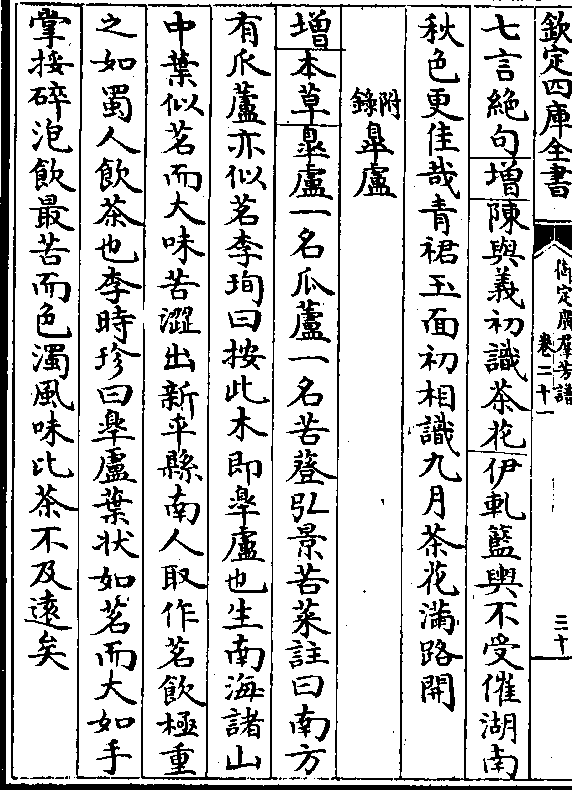 欽定四庫全書
御定廣羣芳譜
卷二十一
三十
七言絶句增陳與義初識茶花伊軋籃輿不受催湖南
秋色更佳哉青裙玉面初相識九月茶花滿路開
附錄臯盧
增本草臯盧一名瓜蘆一名苦䔲弘景苦菜註曰南方
有瓜蘆亦似茗李珣曰按此木即臯盧也生南海諸山
中葉似茗而大味苦澀出新平縣南人取作茗飲極重
之如蜀人飲茶也李時珍曰臯盧葉狀如茗而大如手
掌挼碎泡飲最苦而色濁風味比茶不及遠矣